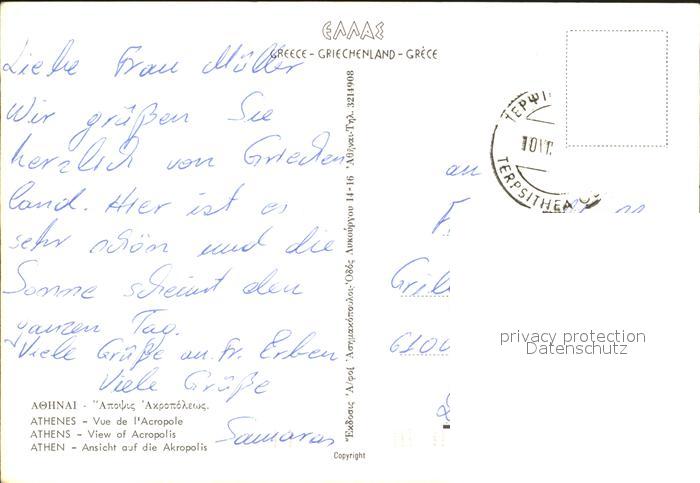 ΕΛΛΑΣ
GREECE – GRIECHENLAND – GRÈCE
Liebe Frau Müller
Wir grüßen Sie
herzlich von Griechen
land. Hier ist es
sehr schön und die
Sonne scheint den
ganzen Tag.
Viele Grüße an Fr. Erben
Viele Grüße
Samaras
ΑΘΗΝΑΙ - Ἄποψις Ἀκροπόλεως.
ATHENES – Vue de l'Acropole
ATHENS – View of Acropolis
ATHEN – Ansicht auf die Akropolis
Ἔκδοσις Ἀ/φοί Ἀσημακόπουλοι-Ὁδὸς Λυκούργου 14-16 Ἀθῆναι-Τηλ. 3214908
Copyright
ΤΕΡΨΙ
TERPSITHEA
an
F.
Grie
6100
privacy protection
Datenschutz